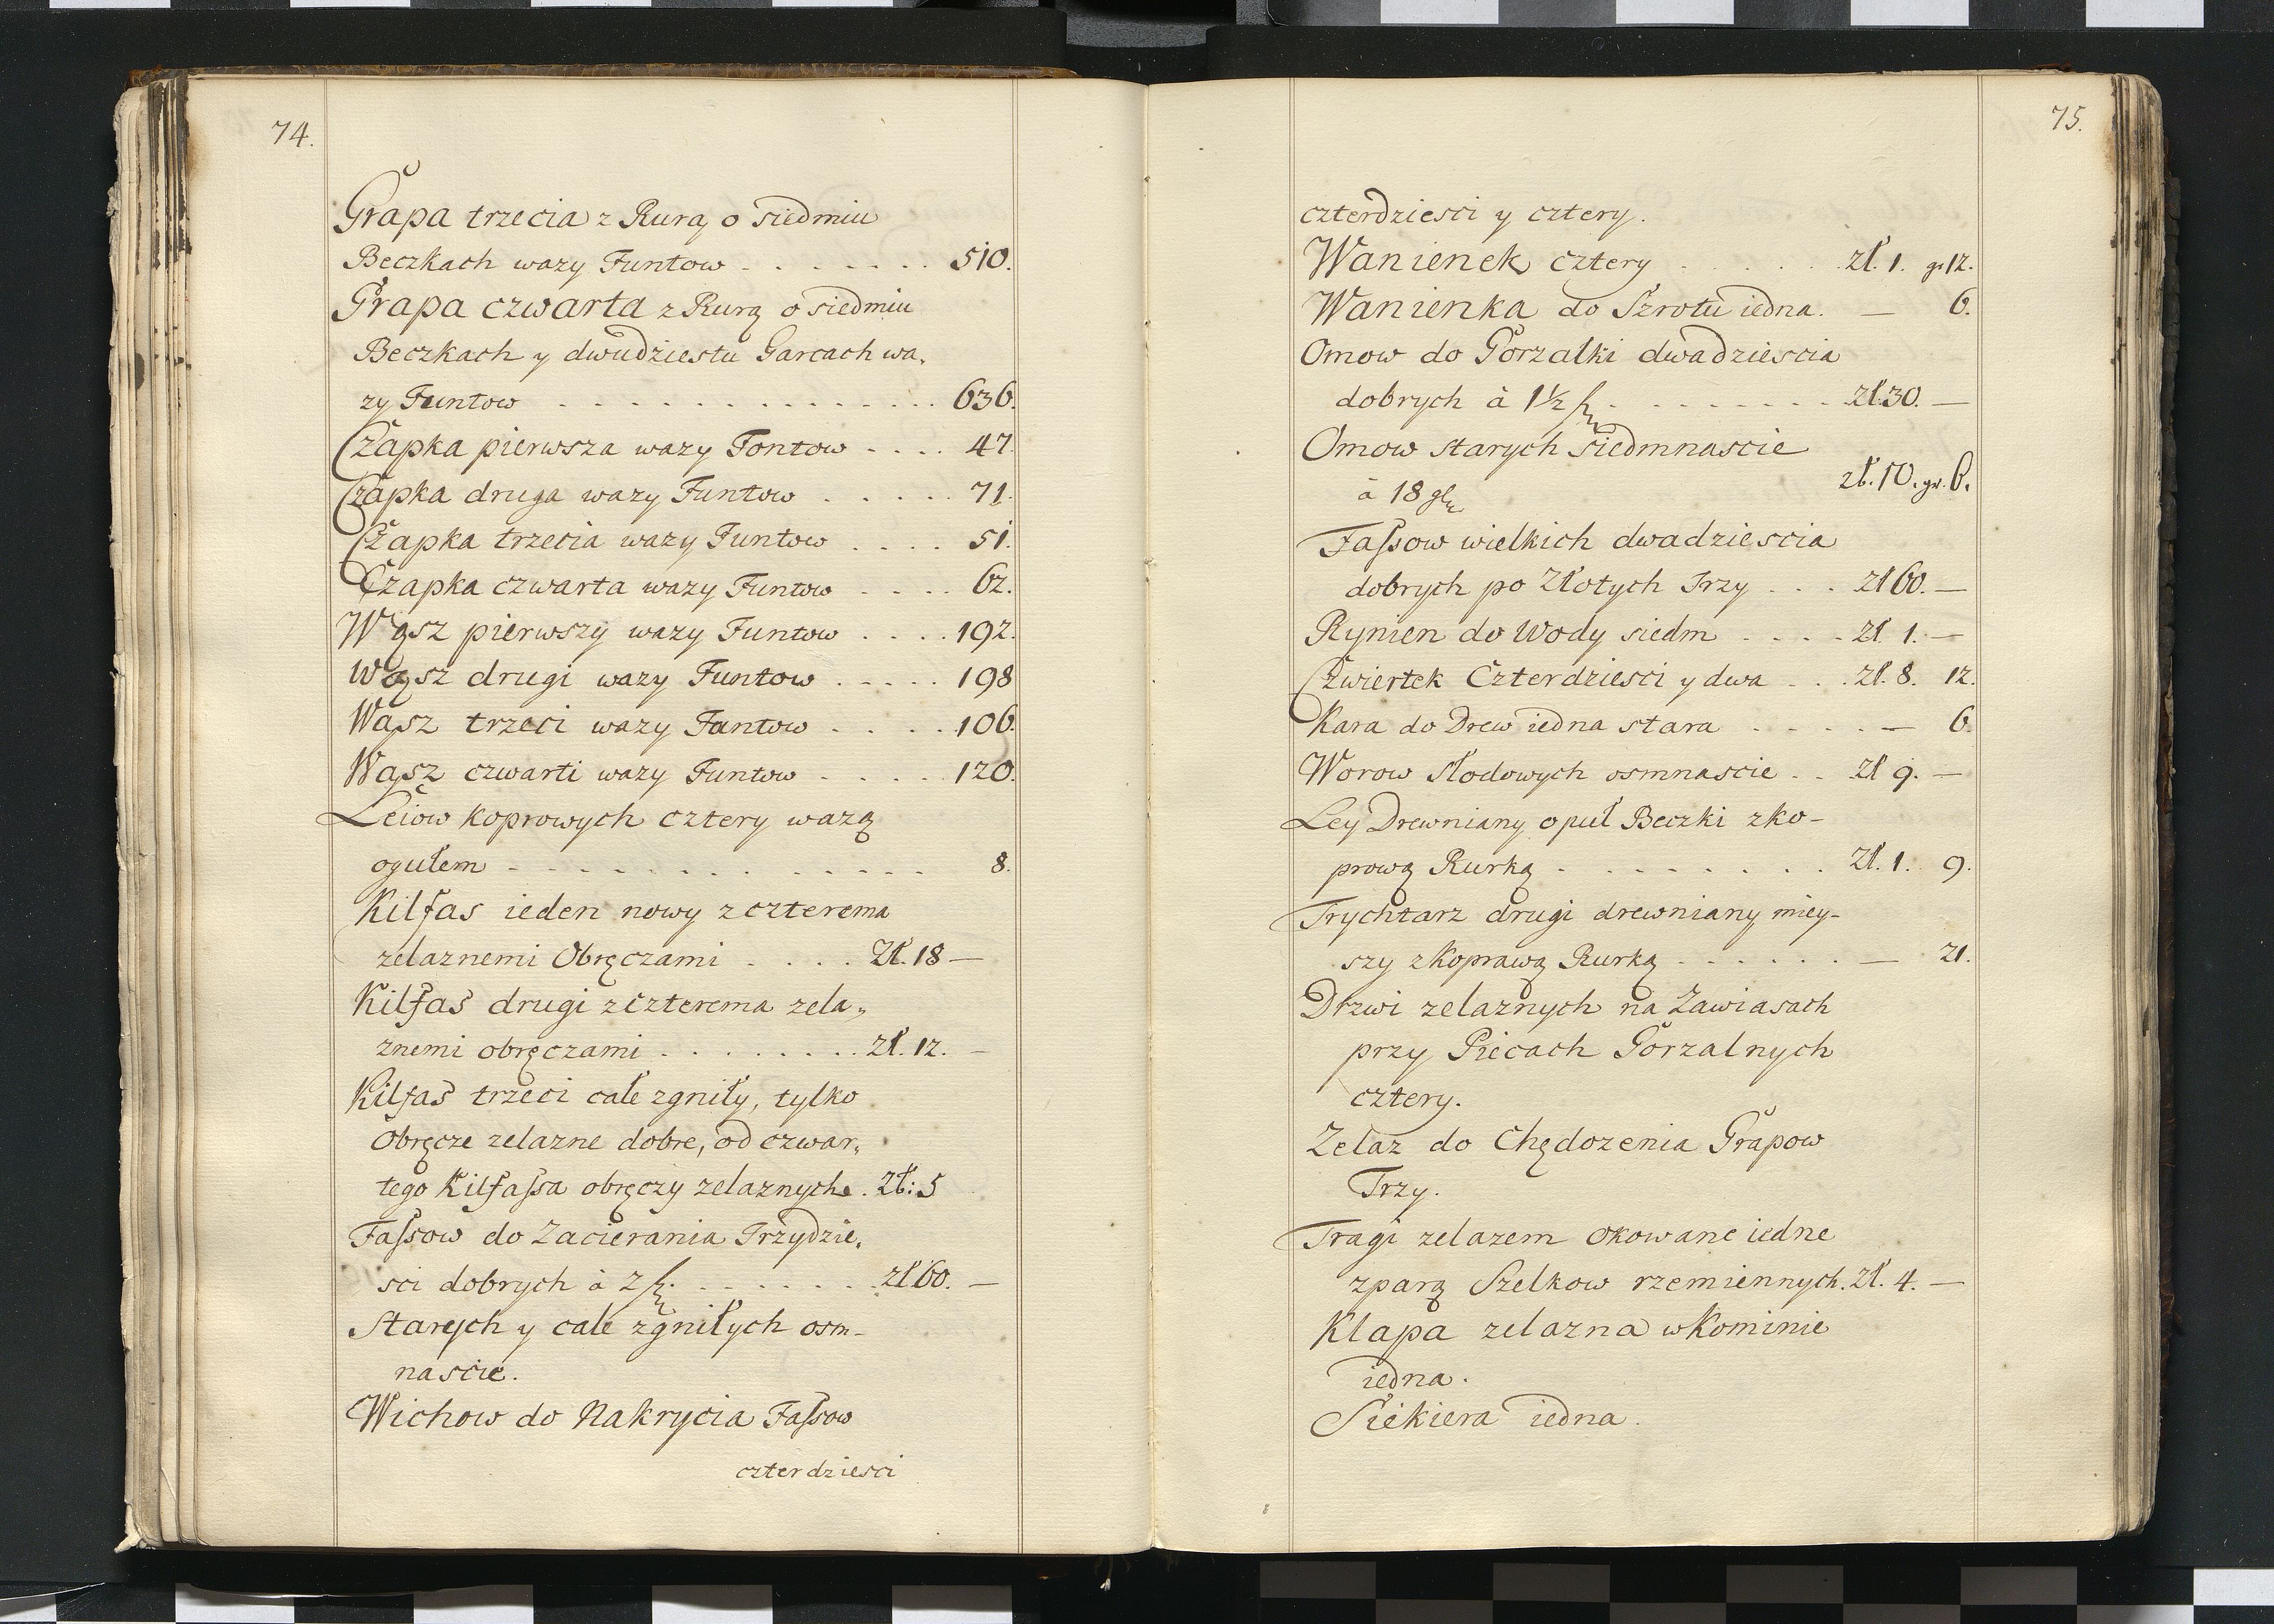 74.
Grapa trzecia z Rurą o siedmiu
Beczkach wazy Funtow . . . . . . . 510.
Grapa czwarta z Rurą o siedmiu
Beczkach y dwudziestu Garcach wa„
zy Funtow . . . . . . . . . . . . . . . 636.
Czapka pierwsza wazy Fontow . . . . 47.
Czapka druga wazy Funtow . . . . . 71.
Czapka trzecia wazy Funtow . . . . 51.
Czapka czwarta wazy Funtow . . . . 62.
Wąsz pierwszy wazy Funtow . . . . 192.
Wąsz drugi wazy Funtow . . . . . 198
Wąsz trzeci wazy Funtow . . . . . 106.
Wąsz czwarti wazy Funtow . . . . 120.
Leiow koprowych cztery wazą
ogułem . . . . . . . . . . . . . . 8.
Kilfas ieden nowy z czterema
zelaznemi Obręczami . . . . Zł. 18 —
Kilfas drugi z czterema zela„
znemi obręczami . . . . . . . . Zł. 12. —
Kilfas trzeci całe zgniły, tylko
Obręcze zelazne dobre, od czwar„
tego Kilfassa obręczy zelaznych. Zł: 5
Fassow do Zacierania Trzydzie„
sci dobrych à 2 . . . . . . . zł 60. —
Starych y całe zgniłych osm-
nascie.
Wichow do Nakrycia Fassow
czterdziesci
75.
czterdziesci y cztery.
Wanienek cztery . . . . . zł. 1. gr 12.
Wanienka do Szrotu iedna. — 6.
Omow do Gorzałki dwadziescia
dobrych à 1½ . . . . . . . . zł. 30. —
Omow starych siedmnascie
à 18 zł. 10. gr. 6.
Fassow wielkich dwadziescia
dobrych po Złotych Trzy . . . zł 60. —
Rynien do Wody siedm . . . . zł. 1. —
Czwiertek Czterdziesci y dwa . . . zł. 8. 12.
Kara do Drew iedna stara . . . . . — 6.
Worow Słodowych osmnascie . . zł 9. —
Ley Drewniany opuł Beczki zko-
prową Rurką . . . . . . . . Zł. 1. 9.
Trychtarz drugi drewniany miey-
szy z Koprawą Rurką . . . . . . — 21.
Drzwi zelaznych na Zawiasach
przy Piecach Gorzalnych
cztery.
Zelaz do Chędozenia Grapow
Trzy.
Tragi zelazem okowane iedne
z parą Szelkow rzemiennych. Zł. 4. —
Klapa zelazna w Kominie
iedna.
Siekiera iedna.